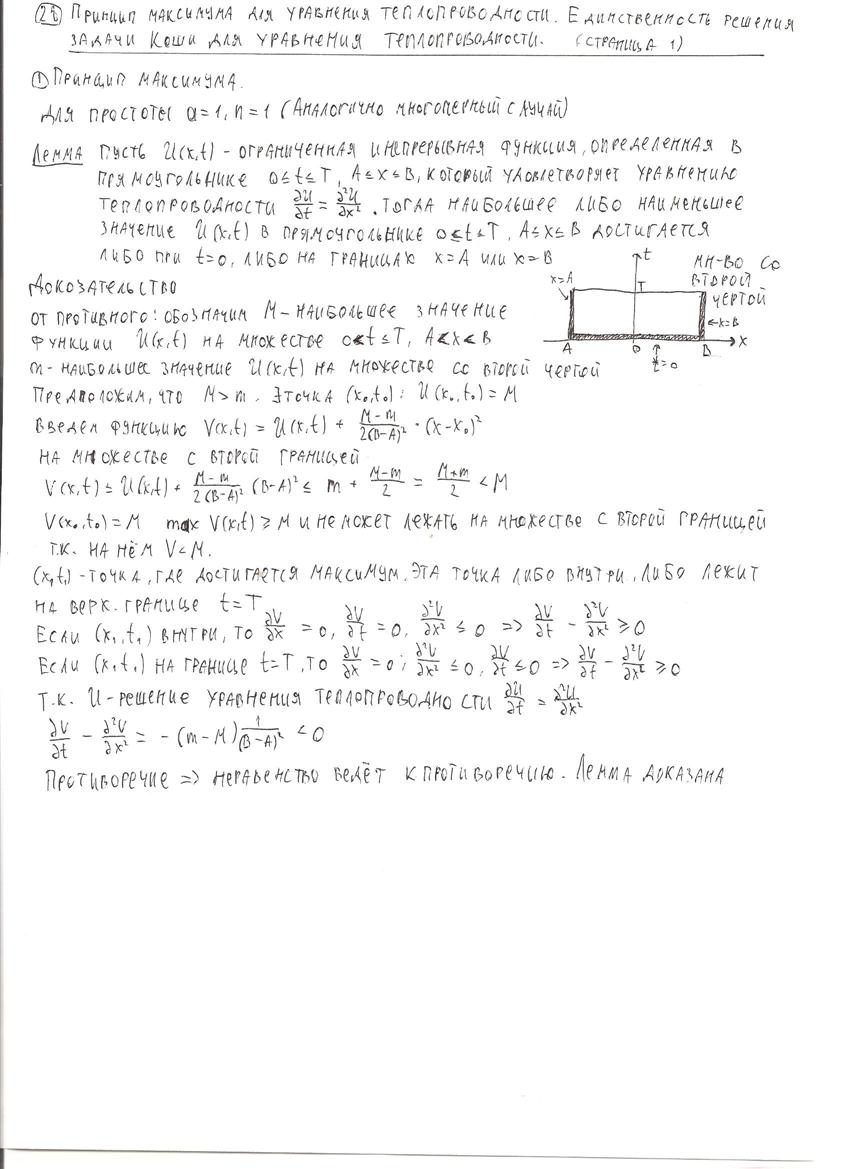 28 Принцип максимума для уравнения теплопроводности. Единственность решения
задачи Коши для уравнения теплопроводности. (страница 1)
① Принцип максимума.
Для простоты a=1, n=1 (Аналогично многомерный случай)
Лемма Пусть U(x,t) - ограниченная и непрерывная функция, определенная в
прямоугольнике 0≤t≤T, A≤x≤B, который удовлетворяет уравнению
теплопроводности ∂U/∂t = ∂²U/∂x². Тогда наибольшее либо наименьшее
значение U(x,t) в прямоугольнике 0≤t≤T, A≤x≤B достигается
либо при t=0, либо на границах x=A или x=B
Докозательство
от противного: обозначим M - наибольшее значение
функции U(x,t) на множестве 0<t≤T, A<x<B
m - наибольшее значение U(x,t) на множестве со второй чертой
Предположим, что M>m. ∃ точка (x₀,t₀): U(x₀,t₀)=M
Введем функцию V(x,t) = U(x,t) + (M-m)/(2(B-A)²) · (x-x₀)²
на множестве с второй границей
V(x,t) ≤ U(x,t) + (M-m)/(2(B-A)²) (B-A)² ≤ m + (M-m)/2 = (M+m)/2 < M
V(x₀,t₀)=M max V(x,t) ≥ M и не может лежать на множестве с второй границей
т.к. на нём V<M.
(x₁t₁) - точка, где достигается максимум. Эта точка либо внутри, либо лежит
на верх. границе t=T
Если (x₁,t₁) внутри, то ∂V/∂x = 0, ∂V/∂t = 0, ∂²V/∂x² ≤ 0 => ∂V/∂t - ∂²V/∂x² ≥ 0
Если (x₁t₁) на границе t=T, то ∂V/∂x = 0; ∂²V/∂x² ≤ 0, ∂V/∂t ≤ 0 => ∂V/∂t - ∂²V/∂x² ≥ 0
Т.к. U - решение уравнения теплопроводности ∂U/∂t = ∂²U/∂x²
∂V/∂t - ∂²V/∂x² = -(m-M) 1/(B-A)² < 0
Противоречие => неравенство ведёт к противоречию. Лемма доказана
x=A
t
T
мн-во со
второй
чертой
x=B
A
0
B
x
t=0